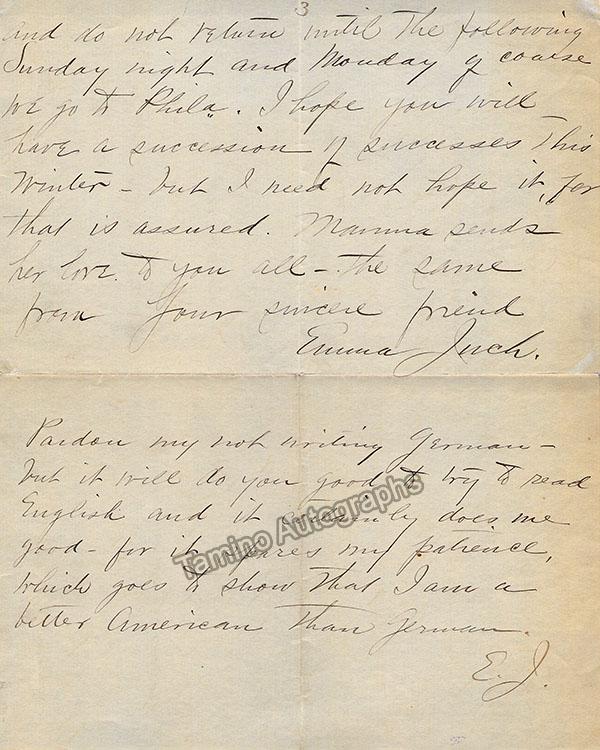 3
and do not return until the following
Sunday night and Monday of course
we go to Phila. I hope you will
have a succession of successes this
Winter - but I need not hope it, for
that is assured. Mamma sends
her love to you all - the same
from Your sincere friend
Emma Juch.
Pardon my not writing German -
but it will do you good to try to read
English and it certainly does me
good - for it spares my patience,
which goes to show that I am a
better American than German.
E. J.
Tamino Autographs